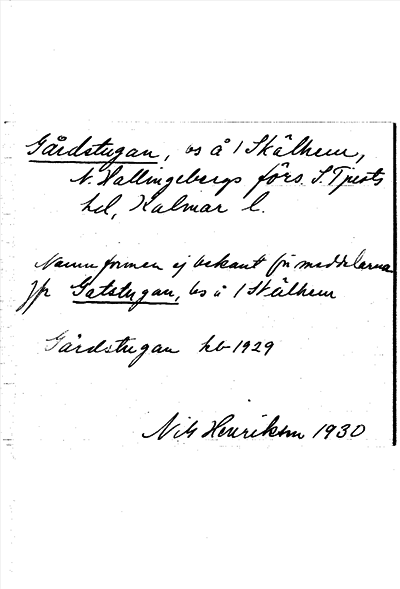 Gårdstugan, bs å 1 Skälhem,
N. Hallingebergs förs. S. Tjusts
hd, Kalmar l.
Namnformen ej bekant för meddelarna
Jfr Gatstugan, bs å 1 Skälhem
Gårdstugan hb 1929
Nils Henrikson 1930